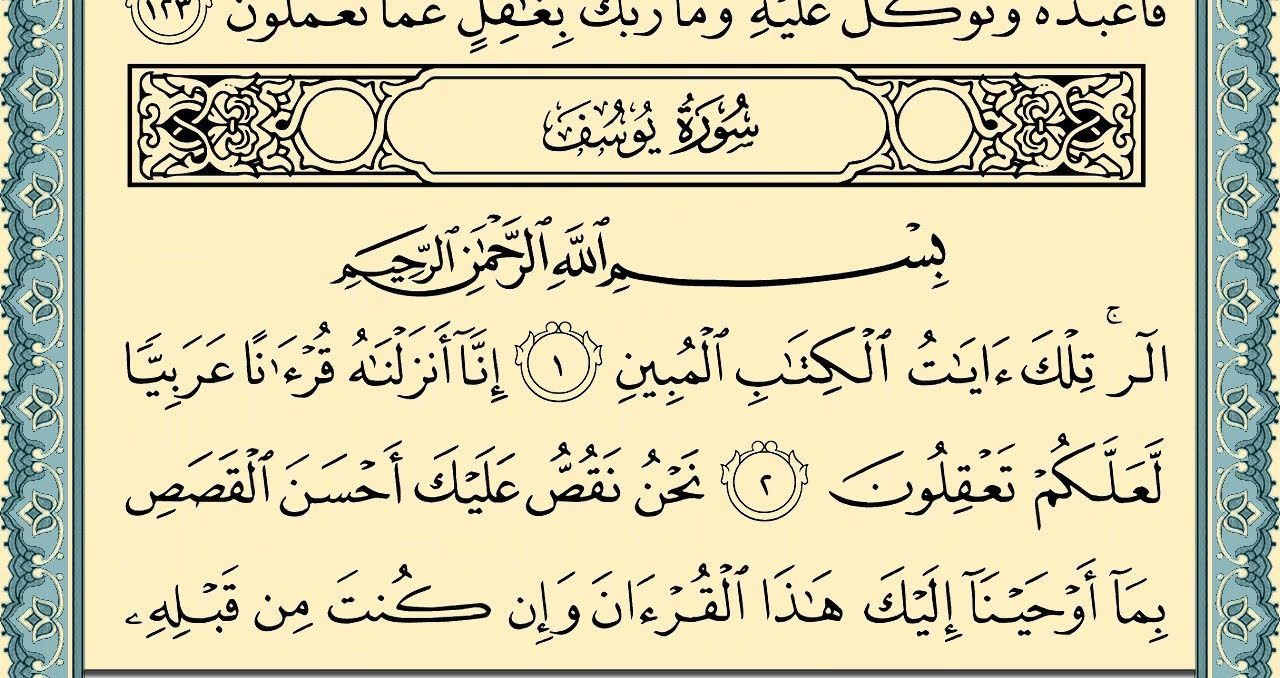 فَاعْبُدْهُ وَتَوَكَّلْ عَلَيْهِ وَمَا رَبُّكَ بِغَٰفِلٍ عَمَّا تَعْمَلُونَ ١٢٣
سُورَةُ يُوسُفَ
بِسْمِ ٱللَّهِ ٱلرَّحْمَٰنِ ٱلرَّحِيمِ
الٓرۚ تِلْكَ ءَايَٰتُ ٱلْكِتَٰبِ ٱلْمُبِينِ ١ إِنَّآ أَنزَلْنَٰهُ قُرْءَٰنًا عَرَبِيًّا
لَّعَلَّكُمْ تَعْقِلُونَ ٢ نَحْنُ نَقُصُّ عَلَيْكَ أَحْسَنَ ٱلْقَصَصِ
بِمَآ أَوْحَيْنَآ إِلَيْكَ هَٰذَا ٱلْقُرْءَانَ وَإِن كُنتَ مِن قَبْلِهِۦ